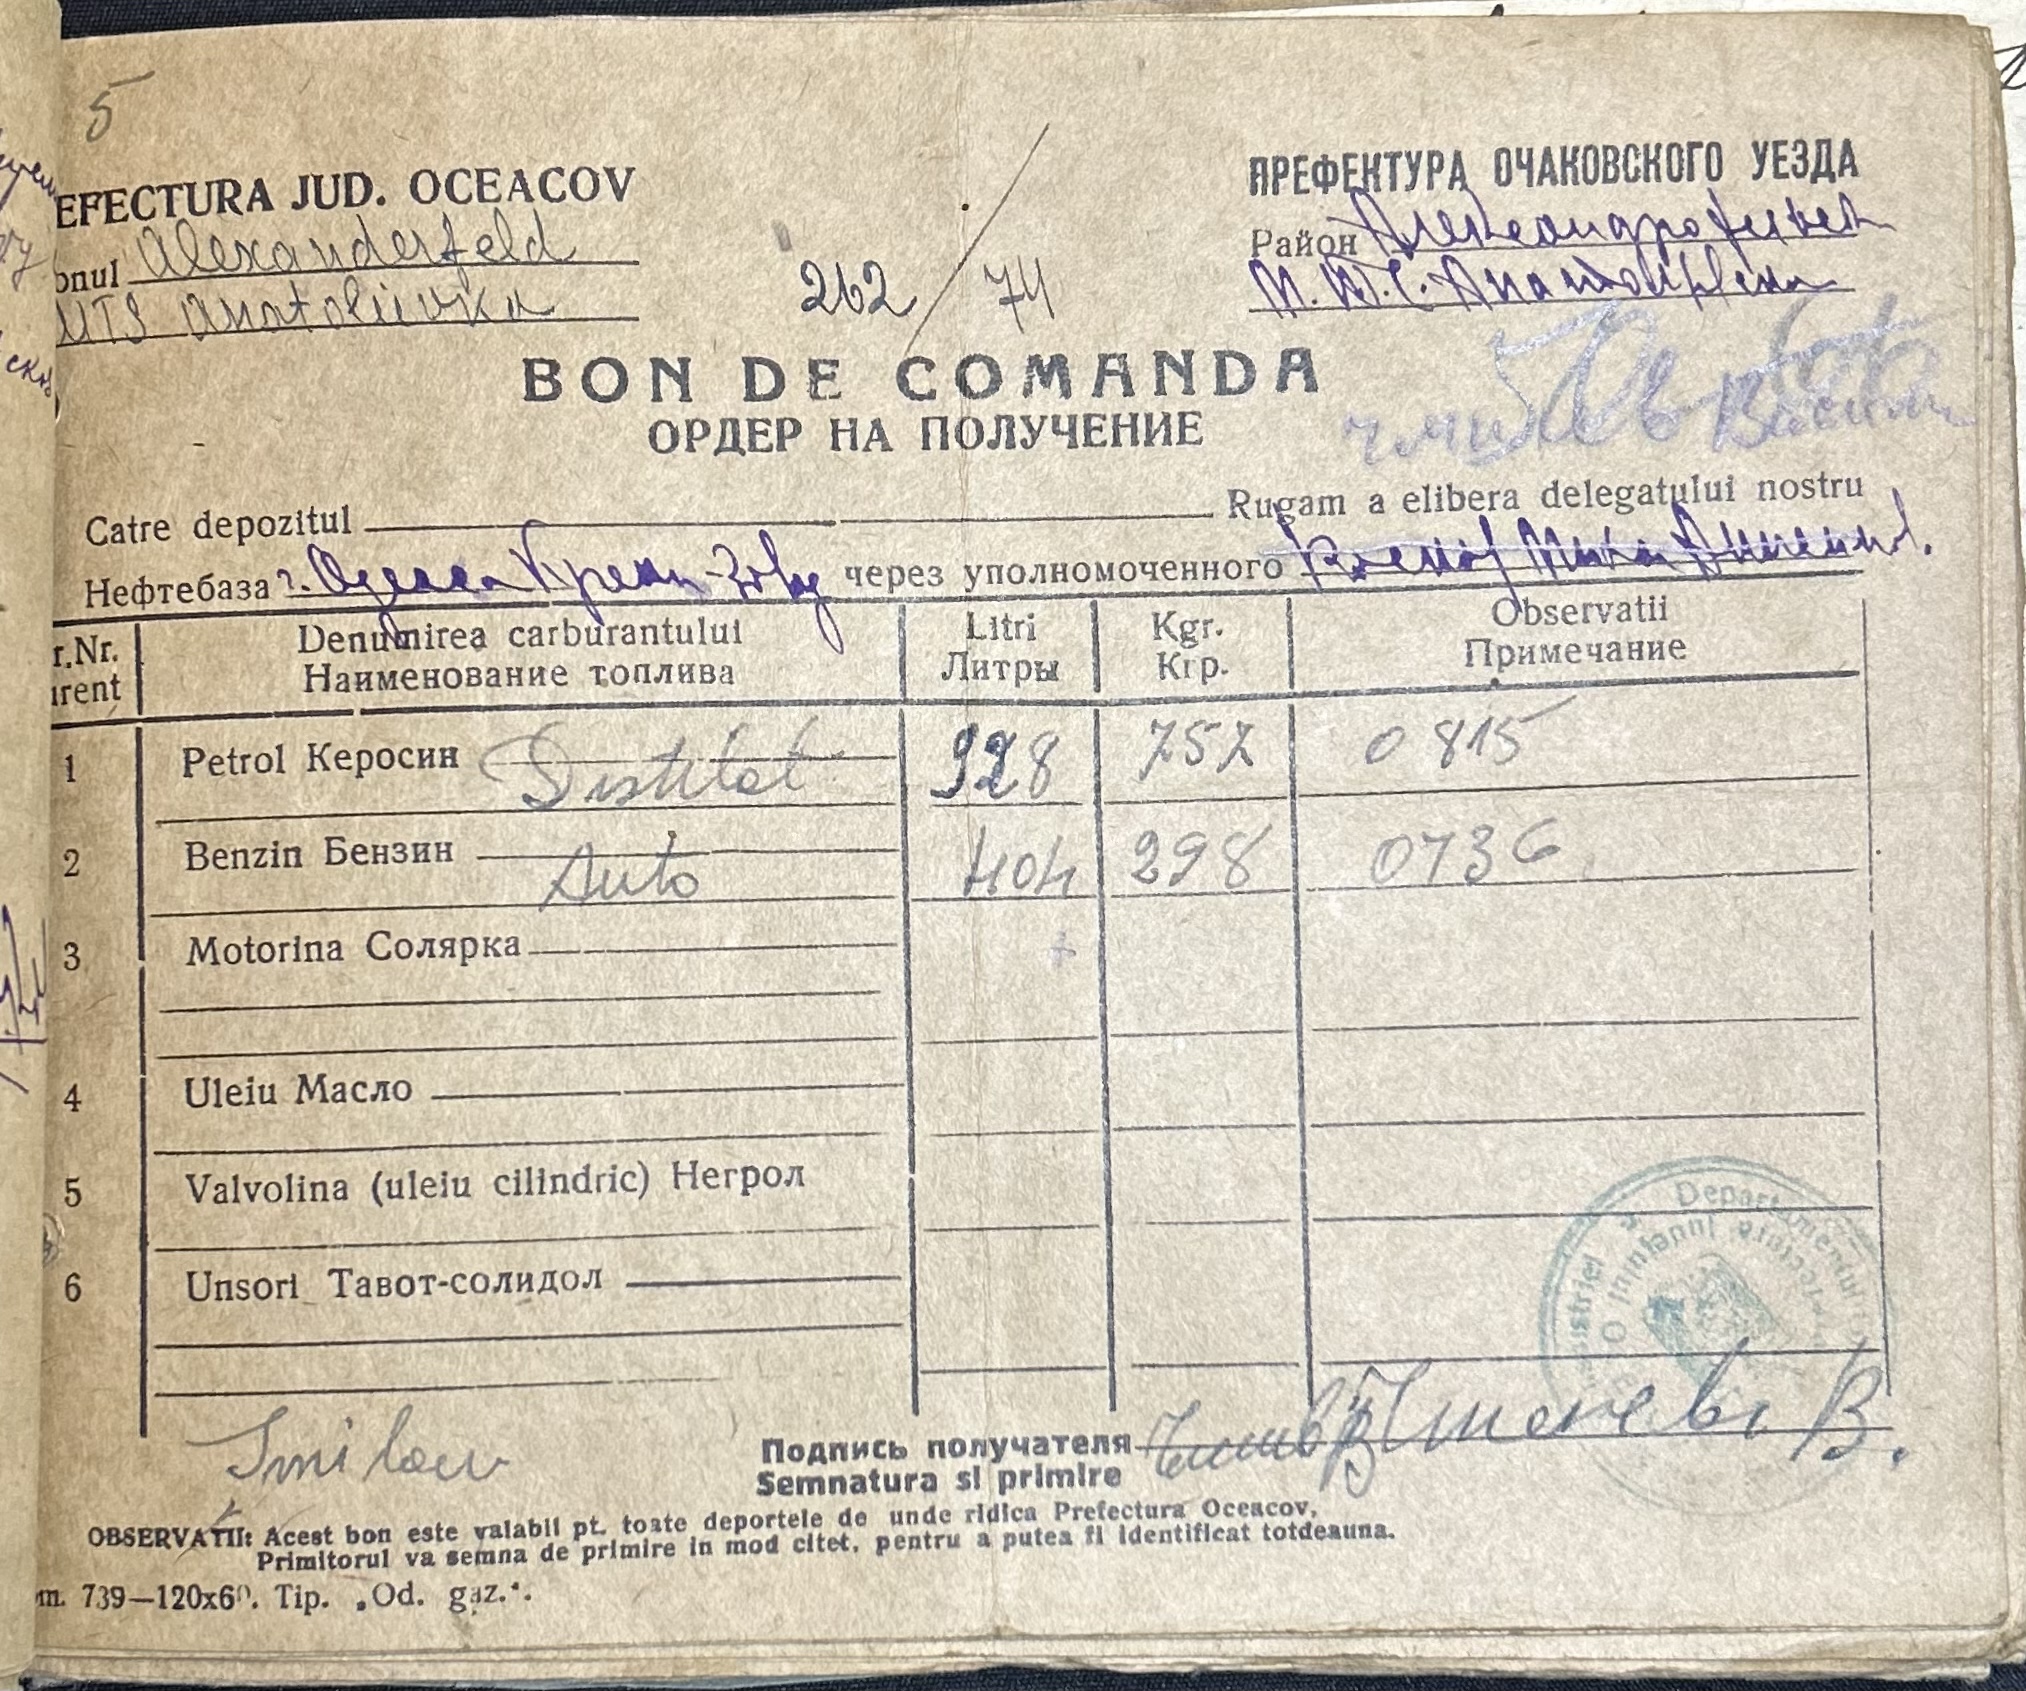 5
EFECTURA JUD. OCEACOV
onul Alexanderfeld
MTS Anatoliivka
262/74
ПРЕФЕКТУРА ОЧАКОВСКОГО УЕЗДА
Район
М.Т.С.
BON DE COMANDA
ОРДЕР НА ПОЛУЧЕНИЕ
Catre depozitul Rugam a elibera delegatului nostru
Нефтебаза г. Одесса через уполномоченного
r.Nr. Denumirea carburantului Litri Kgr. Observatii
urent Наименование топлива Литры Кгр. Примечание
1 Petrol Керосин Distilat 928 757 0815
2 Benzin Бензин Auto 404 298 0736
3 Motorina Солярка
4 Uleiu Масло
5 Valvolina (uleiu cilindric) Негрол
6 Unsori Тавот-солидол
Departamentului
Подпись получателя
Semnatura si primire
OBSERVATII: Acest bon este valabil pt. toate deportele de unde ridica Prefectura Oceacov,
Primitorul va semna de primire in mod citet, pentru a putea fi identificat totdeauna.
m. 739—120x60. Tip. „Od. gaz.“.